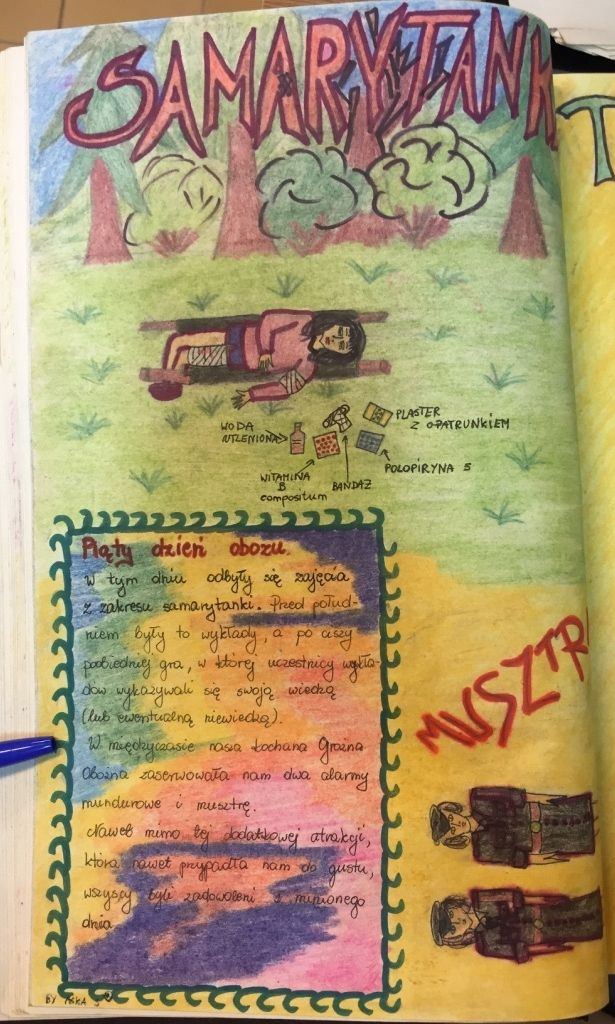 SAMARYTANK
T
WODA
UTLENIONA
WITAMINA
B
compositum
BANDAŻ
PLASTER
Z OPATRUNKIEM
POLOPIRYNA S
Piąty dzień obozu.
W tym dniu odbyły się zajęcia
z zakresu samarytanki. Przed połud-
niem były to wykłady, a po ciszy
poobiedniej gra, w której uczestnicy wykła-
dów wykazywali się swoją wiedzą
(lub ewentualną niewiedzą).
W międzyczasie nasza kochana Groźna
Oboźna zaserwowała nam dwa alarmy
mundurowe i musztrę.
Nawet mimo tej dodatkowej atrakcji,
która nawet przypadła nam do gustu,
wszyscy byli zadowoleni z minionego
dnia.
MUSZTR
BY